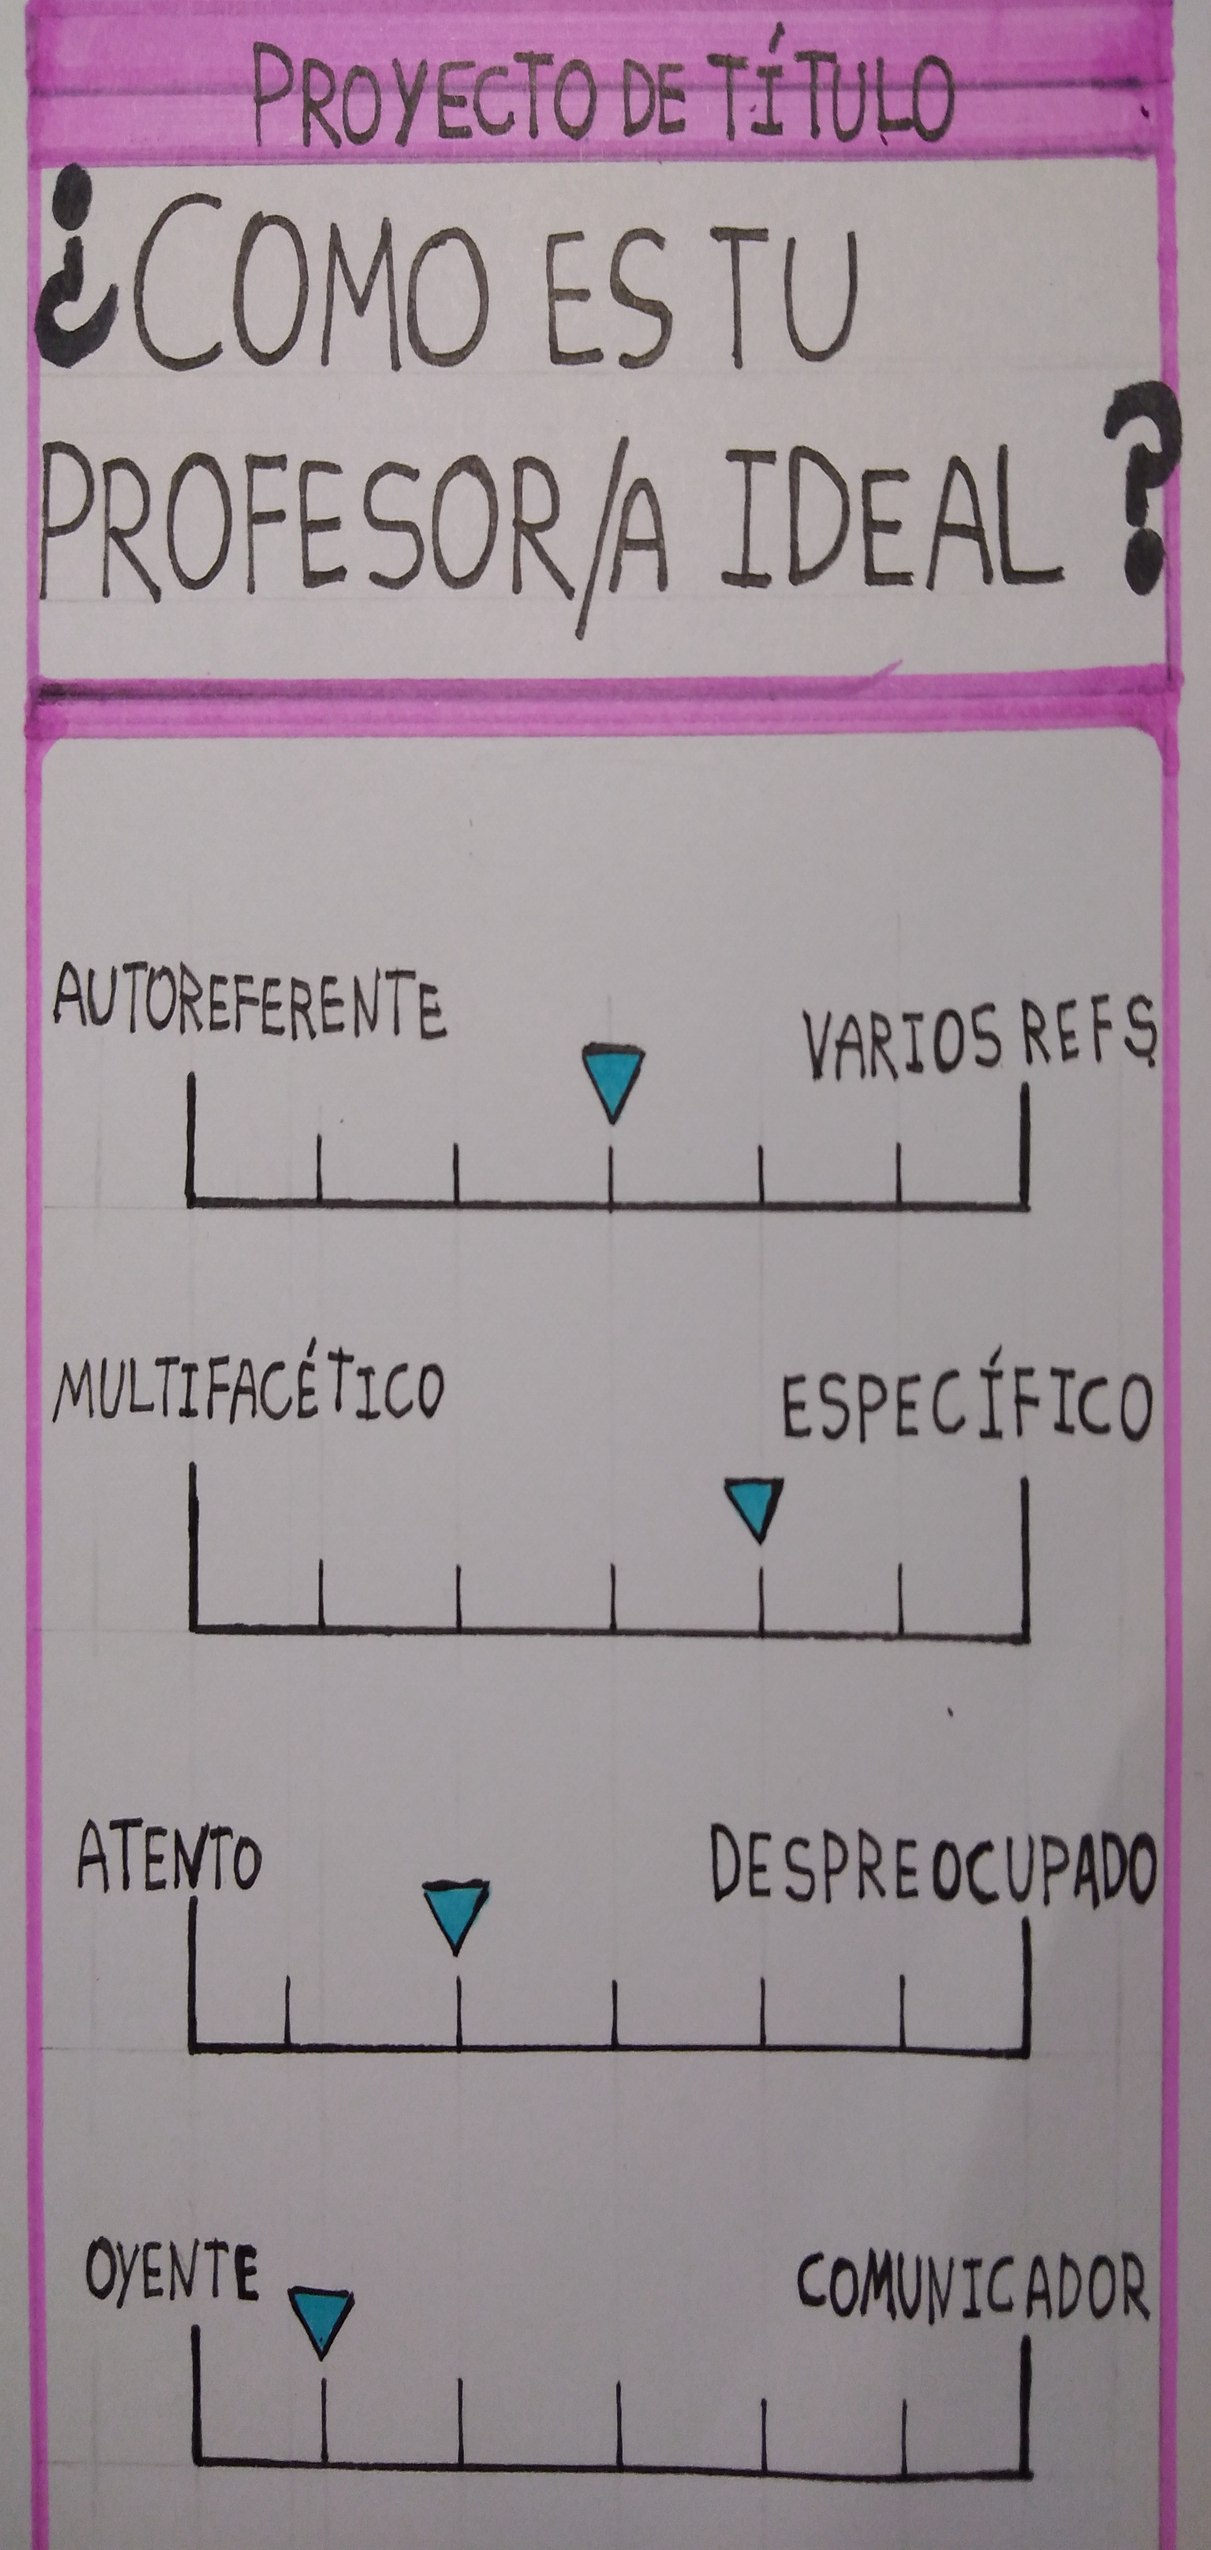 PROYECTO DE TÍTULO
¿COMO ES TU
PROFESOR/A IDEAL ?
AUTOREFERENTE
VARIOS REFS
MULTIFACÉTICO
ESPECÍFICO
ATENTO
DESPREOCUPADO
OYENTE
COMUNICADOR